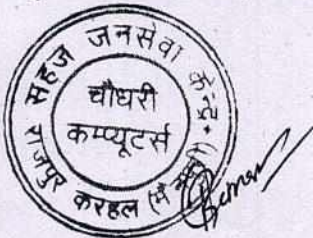 सहज जनसेवा केन्द्र
चौधरी
कम्प्यूटर्स
राजपुर करहल (मैनपुरी)